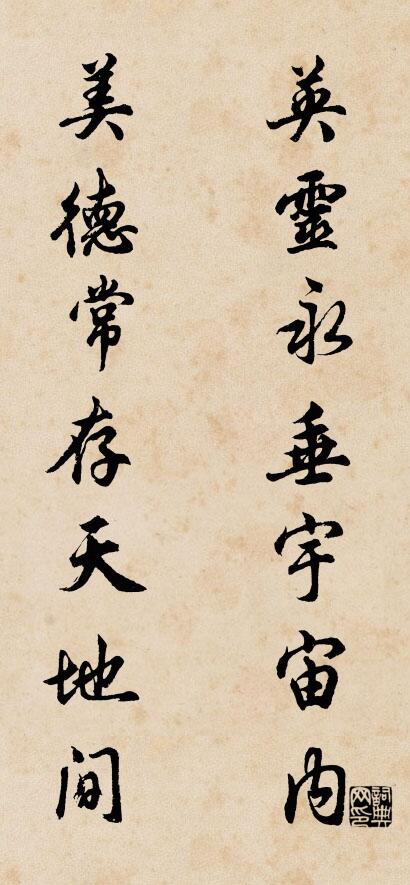 英靈永垂宇宙内
美德常存天地间
詞典网印